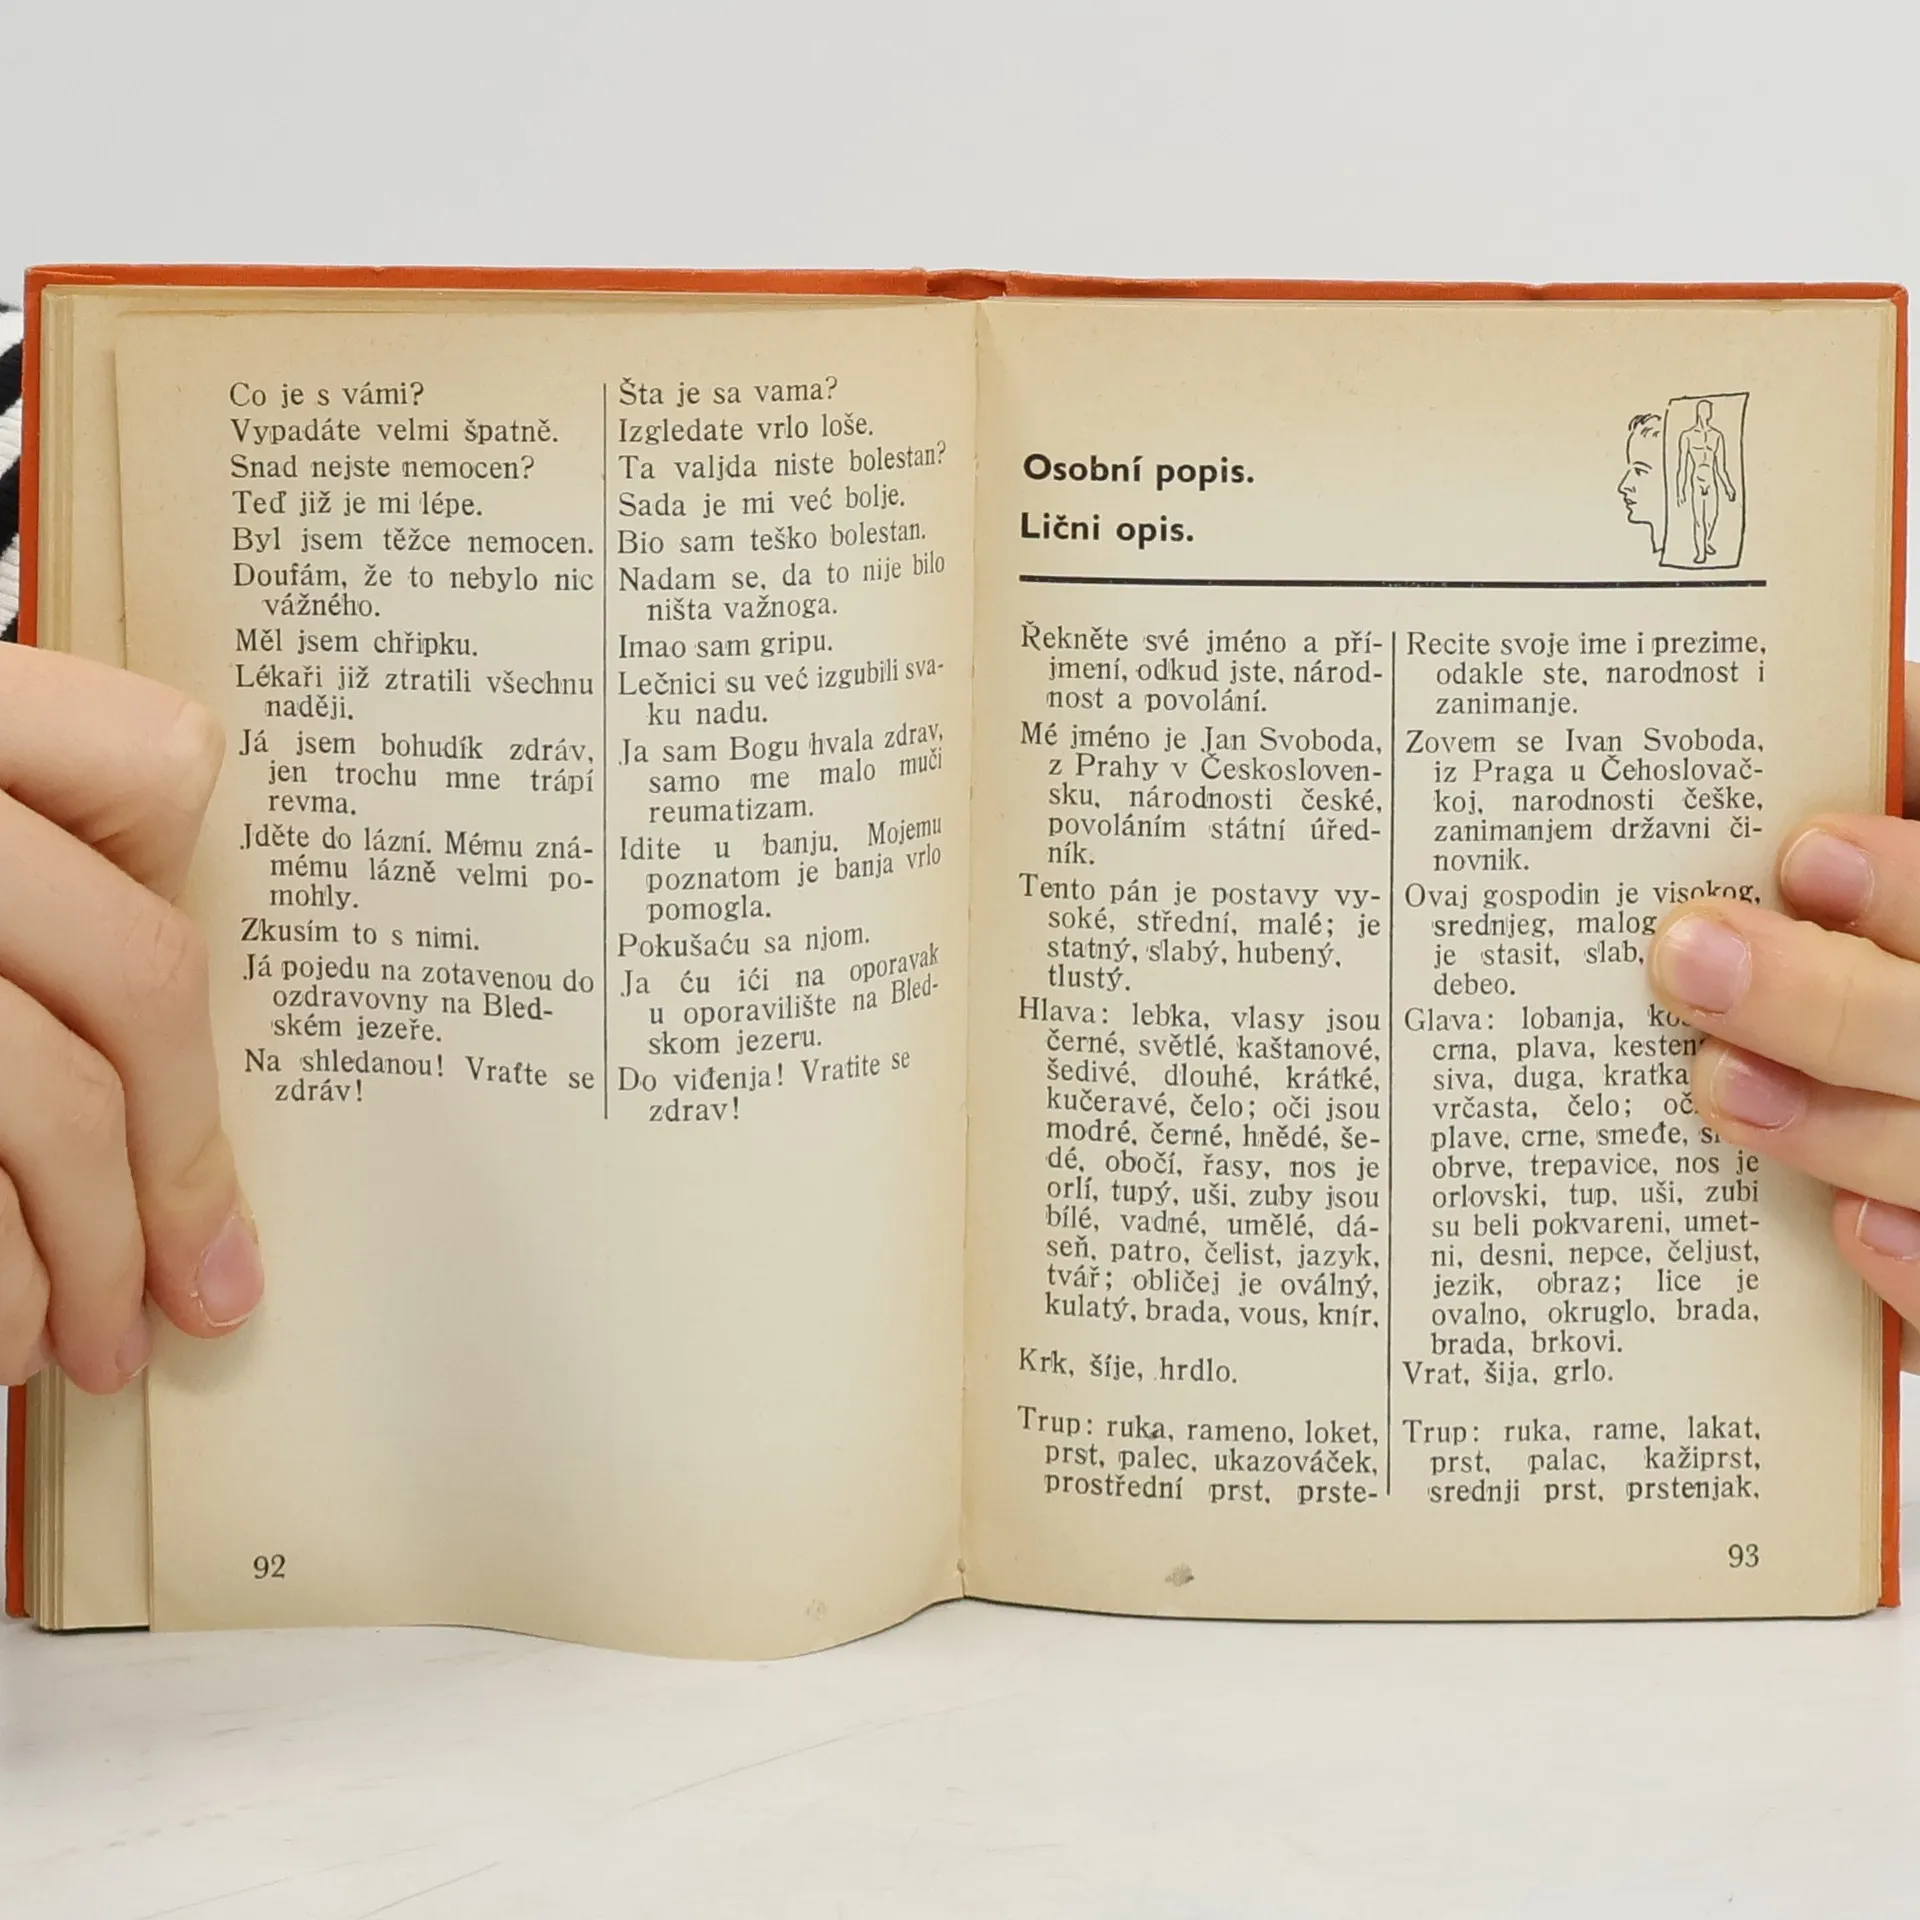 Co je s vámi?
Vypadáte velmi špatně.
Snad nejste nemocen?
Teď již je mi lépe.
Byl jsem těžce nemocen.
Doufám, že to nebylo nic
vážného.
Měl jsem chřipku.
Lékaři již ztratili všechnu
naději.
Já jsem bohudík zdráv,
jen trochu mne trápí
revma.
Jděte do lázní. Mému zná-
mému lázně velmi po-
mohly.
Zkusím to s nimi.
Já pojedu na zotavenou do
ozdravovny na Bled-
ském jezeře.
Na shledanou! Vraťte se
zdráv!
Šta je sa vama?
Izgledate vrlo loše.
Ta valjda niste bolestan?
Sada je mi već bolje.
Bio sam teško bolestan.
Nadam se, da to nije bilo
ništa važnoga.
Imao sam gripu.
Lečnici su već izgubili sva-
ku nadu.
Ja sam Bogu hvala zdrav,
samo me malo muči
reumatizam.
Idite u banju. Mojemu
poznatom je banja vrlo
pomogla.
Pokušaću sa njom.
Ja ću ići na oporavak
u oporavilište na Bled-
skom jezeru.
Do viđenja! Vratite se
zdrav!
92
Osobní popis.
Lični opis.
Řekněte své jméno a pří-
jmení, odkud jste, národ-
nost a povolání.
Mé jméno je Jan Svoboda,
z Prahy v Českosloven-
sku, národnosti české,
povoláním státní úřed-
ník.
Tento pán je postavy vy-
soké, střední, malé; je
statný, slabý, hubený,
tlustý.
Hlava: lebka, vlasy jsou
černé, světlé, kaštanové,
šedivé, dlouhé, krátké,
kučeravé, čelo; oči jsou
modré, černé, hnědé, še-
dé, obočí, řasy, nos je
orlí, tupý, uši, zuby jsou
bílé, vadné, umělé, dá-
seň, patro, čelist, jazyk,
tvář; obličej je oválný,
kulatý, brada, vous, knír.
Krk, šíje, hrdlo.
Trup: ruka, rameno, loket,
prst, palec, ukazováček,
prostřední prst, prste-
Recite svoje ime i prezime,
odakle ste, narodnost i
zanimanje.
Zovem se Ivan Svoboda,
iz Praga u Čehoslovač-
koj, narodnosti češke,
zanimanjem državni či-
novnik.
Ovaj gospodin je visokog,
srednjeg, malog
je stasit, slab,
debeo.
Glava: lobanja,
crna, plava,
siva, duga, kratka
vrčasta, čelo;
plave, crne, smeđe,
obrve, trepavice, nos je
orlovski, tup, uši, zubi
su beli pokvareni, umet-
ni, desni, nepce, čeljust,
jezik, obraz; lice je
ovalno, okruglo, brada,
brada, brkovi.
Vrat, šija, grlo.
Trup: ruka, rame, lakat,
prst, palac, kažiprst,
srednji prst, prstenjak,
93